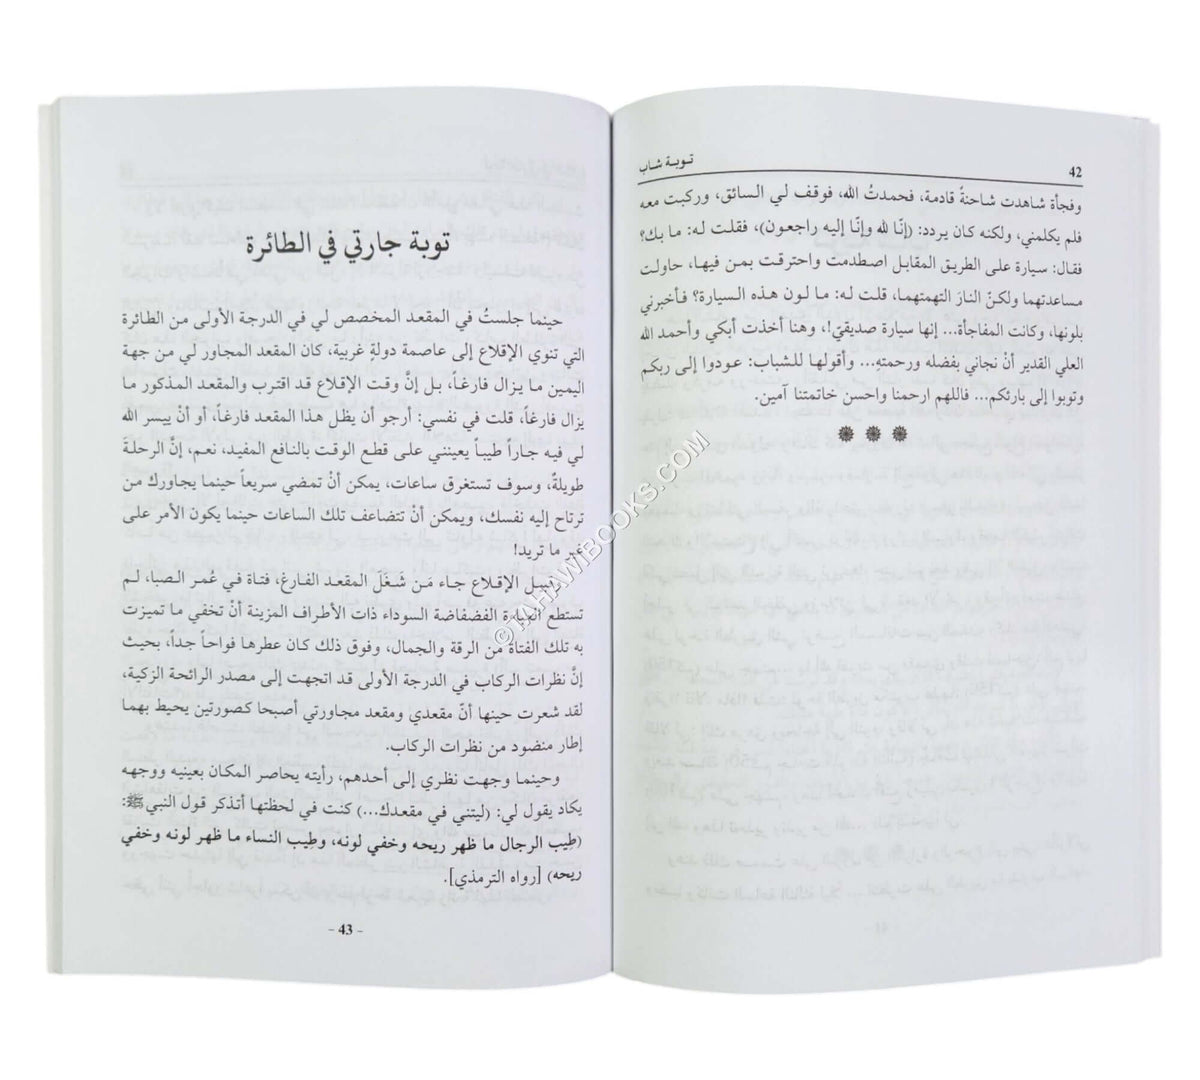 42
توبة شاب
وفجأة شاهدت شاحنةً قادمة، فحمدتُ الله، فوقف لي السائق، وركبت معه
فلم يكلمني، ولكنه كان يردد: (إنّا لله وإنّا إليه راجعون)، فقلت له: ما بك؟
فقال: سيارة على الطريق المقابل اصطدمت واحترقت بمن فيها، حاولت
مساعدتهما ولكنّ النارَ التهمتهما، قلت له: ما لون هذه السيارة؟ فأخبرني
بلونها، وكانت المفاجأة... إنها سيارة صديقيّ!، وهنا أخذت أبكي وأحمد الله
العلي القدير أنْ نجاني بفضله ورحمته... وأقولها للشباب: عودوا إلى ربكم
وتوبوا إلى بارئكم... فاللهم ارحمنا واحسن خاتمتنا آمين.
توبة جارتي في الطائرة
حينما جلستُ في المقعد المخصص لي في الدرجة الأولى من الطائرة
التي تنوي الإقلاع إلى عاصمة دولةٍ غربية، كان المقعد المجاور لي من جهة
اليمين ما يزال فارغاً، بل إنَّ وقت الإقلاع قد اقترب والمقعد المذكور ما
يزال فارغاً، قلت في نفسي: أرجو أن يظل هذا المقعد فارغاً، أو أنْ ييسر الله
لي فيه جاراً طيباً يعينني على قطع الوقت بالنافع المفيد، نعم، إنَّ الرحلة
طويلةٌ، وسوف تستغرق ساعات، يمكن أنْ تمضي سريعاً حينما يجاورك من
ترتاح إليه نفسك، ويمكن أنْ تتضاعف تلك الساعات حينما يكون الأمر على
غير ما تريد!
وقبيل الإقلاع جاء مَن شغَل المقعد الفارغ، فتاة في عُمر الصبا، لم
تستطع العباءة الفضفاضة السوداء ذات الأطراف المزينة أنْ تخفي ما تميزت
به تلك الفتاة من الرقة والجمال، وفوق ذلك كان عطرها فواحاً جداً، بحيث
إنَّ نظرات الركاب في الدرجة الأولى قد اتجهت إلى مصدر الرائحة الزكية،
لقد شعرت حينها أنّ مقعدي ومقعد مجاورتي أصبحا كصورتين يحيط بهما
إطار منضود من نظرات الركاب.
وحينما وجهت نظري إلى أحدهم، رأيته يحاصر المكان بعينيه ووجهه
يكاد يقول لي: (ليتني في مقعدك...) كنت في لحظتها أتذكر قول النبي ﷺ:
(طِيب الرجال ما ظهر ريحه وخفي لونه، وطِيب النساء ما ظهر لونه وخفي
ريحه) [رواه الترمذي].
- 43 -
© TAHAWIBOOKS.COM